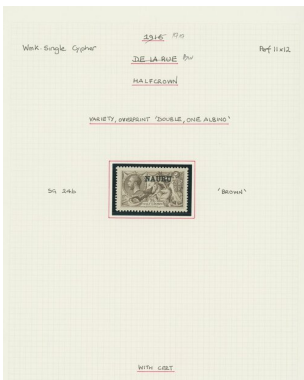 1915
Wmk. Single Cypher
Perf 11x12
DE LA RUE
HALFCROWN
VARIETY, OVERPRINT 'DOUBLE, ONE ALBINO'
NAURU
SG 24b
'BROWN'
WITH CERT